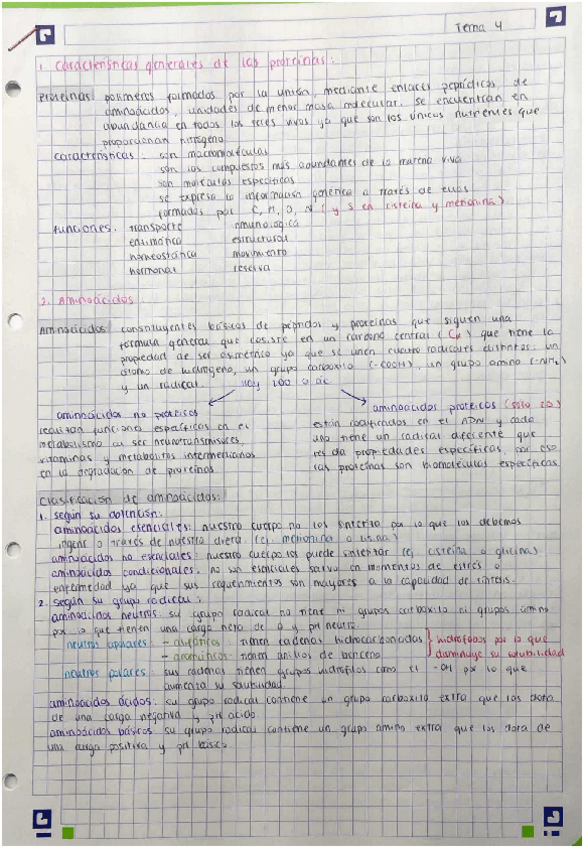 Tema 4
1. Características generales de las proteínas:
Proteínas: polímeros formados por la unión, mediante enlaces peptídicos, de
aminoácidos, unidades de menor masa molecular. Se encuentran en
abundancia en todos los seres vivos ya que son los únicos nutrientes que
proporcionan nitrógeno
Características: son macromoléculas
son los compuestos más abundantes de la materia viva
son moléculas específicas
se expresa la información genética a través de ellas
formadas por C, H, O, N (y S en cisteína y metionina)
Funciones: transporte inmunológica
enzimática estructural
homeostática movimiento
hormonal reserva
2. Aminoácidos
Aminoácidos: constituyentes básicos de péptidos y proteínas que siguen una
fórmula general que consiste en un carbono central (Cα) que tiene la
propiedad de ser asimétrico ya que se unen cuatro radicales distintos: un
átomo de hidrógeno, un grupo carboxilo (-COOH), un grupo amino (-NH₂)
y un radical. Hay 200 a.ac
aminoácidos no proteicos
realizan funciones específicas en el
metabolismo al ser neurotransmisores,
vitaminas y metabolitos intermediarios
en la degradación de proteínas
aminoácidos proteicos (solo 20)
están codificados en el ADN y cada
uno tiene un radical diferente que
les da propiedades específicas, por eso
las proteínas son biomoléculas específicas
Clasificación de aminoácidos:
1. según su obtención:
aminoácidos esenciales: nuestro cuerpo no los sintetiza por lo que los debemos
ingerir a través de nuestra dieta (ej. metionina o lisina)
aminoácidos no esenciales: nuestro cuerpo los puede sintetizar (ej. cisteína o glicina)
aminoácidos condicionales: no son esenciales salvo en momentos de estrés o
enfermedad ya que sus requerimientos son mayores a la capacidad de síntesis.
2. según su grupo radical:
aminoácidos neutros: su grupo radical no tiene ni grupos carboxilo ni grupos amino
por lo que tienen una carga neta de 0 y pH neutro.
neutros apolares: - alifáticos: tienen cadenas hidrocarbonadas
- aromáticos: tienen anillos de benceno
hidrófobos por lo que
disminuye su solubilidad
neutros polares: sus cadenas tienen grupos hidrófilos como el -OH por lo que
aumenta su solubilidad.
aminoácidos ácidos: su grupo radical contiene un grupo carboxilo extra que los dota
de una carga negativa y pH ácido
aminoácidos básicos: su grupo radical contiene un grupo amino extra que los dota de
una carga positiva y pH básico